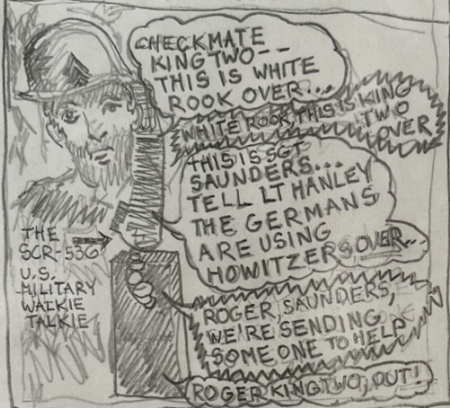 CHECKMATE
KING TWO--
THIS IS WHITE
ROOK OVER...
WHITE ROOK, THIS IS KING
TWO
OVER
THIS IS SGT
SAUNDERS...
TELL LT HANLEY
THE GERMANS
ARE USING
HOWITZERS, OVER...
ROGER, SAUNDERS,
WE'RE SENDING
SOMEONE TO HELP
ROGER KING TWO, OUT!
THE
SCR-536
U.S.
MILITARY
WALKIE
TALKIE